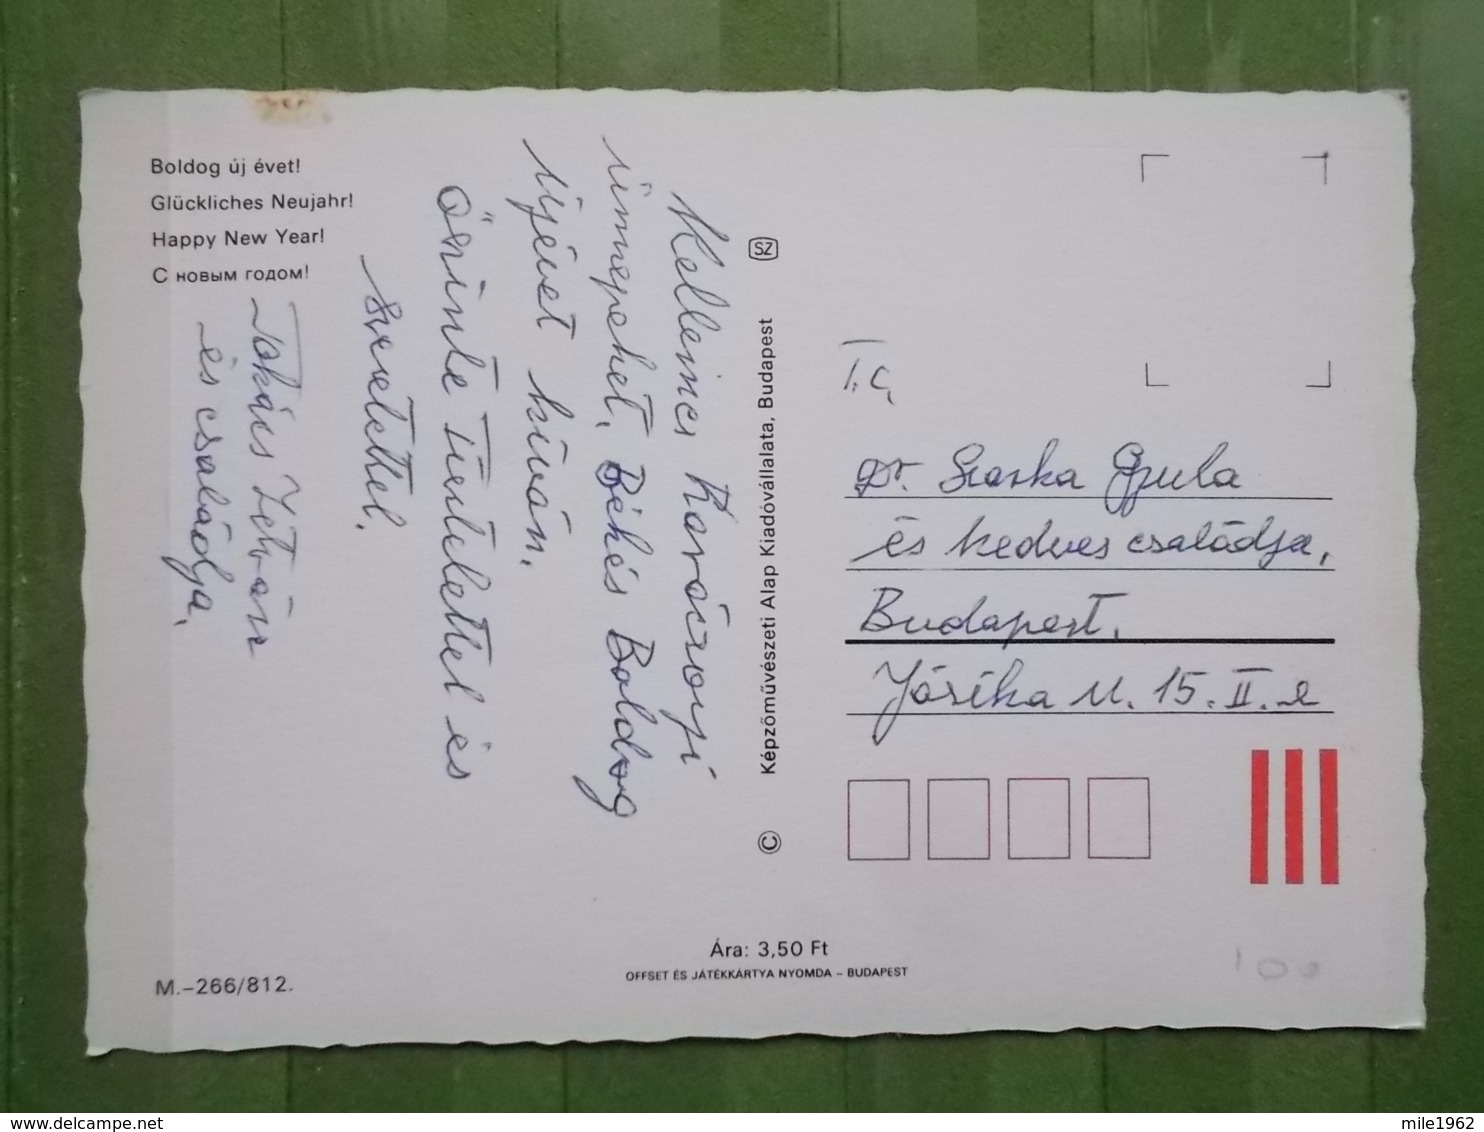 Boldog új évet!
Glückliches Neujahr!
Happy New Year!
С новым годом!
Kellemes Karácsonyi
ünnepeket, Békés Boldog
Újévet kíván,
Őszinte tisztelettel és
szeretettel,
és családja,
SZ
© Képzőművészeti Alap Kiadóvállalata, Budapest
T.C.
Dr. Szaska Gyula
és kedves családja,
Budapest,
Jósika u. 15. II. e
Ára: 3,50 Ft
OFFSET ÉS JÁTÉKKÁRTYA NYOMDA – BUDAPEST
M.–266/812.
100
delcampe.net
mile1962